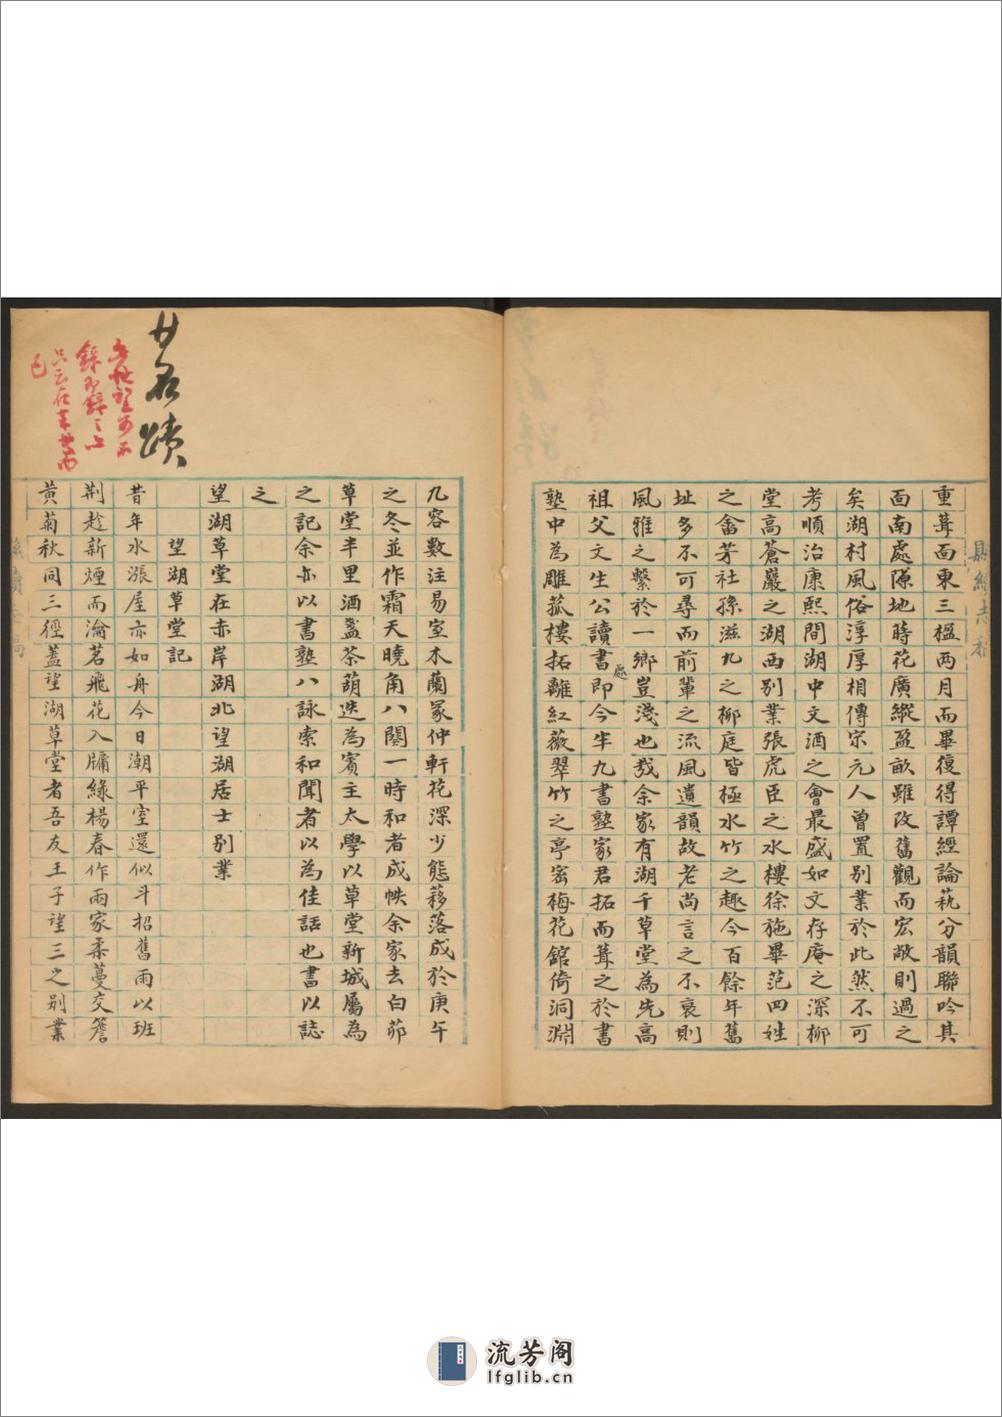 重葺面東三楹兩月而畢復得譚經論藝分韻聯吟其
面南處隙地蒔花廣縱盈畝雖改舊觀而宏敞則過之
矣湖村風俗淳厚相傳宗元人曾置別業於此然不可
考順治康熙間湖中文酒之會最盛如文存庵之深柳
堂高蒼巖之湖西別業張虎臣之水樓徐施畢范四姓
之畬芳社孫滋九之柳庭皆極水竹之趣今百餘年舊
址多不可尋而前輩之流風遺韻故老尚言之不衰則
風雅之繫於一鄉豈淺也哉余家有湖千草堂為先高
祖父文生公讀書處即今半九書塾家君拓而葺之於書
塾中為雕菰樓拓離紅薇翠竹之亭宻梅花館倚洞淵
九容數注易室木蘭冢仲軒花深少態簃落成於庚午
之冬並作霜天曉角八闋一時和者成帙余家去白茆
草堂半里酒盞茶葫迭為賓主太學以草堂新城屬為
之記余亦以書塾八詠索和聞者以為佳話也書以誌
之
望湖草堂在赤岸湖北望湖居士別業
望湖草堂記
昔年水漲屋亦如舟今日潮平室還似斗招舊雨以班
荆趁新煙而瀹茗飛花入牖綠楊春作兩家柔蔓交簷
黃菊秋同三徑蓋望湖草堂者吾友王子望三之別業
廿名蹟
縣續志稿
流芳阁
lfglib.cn